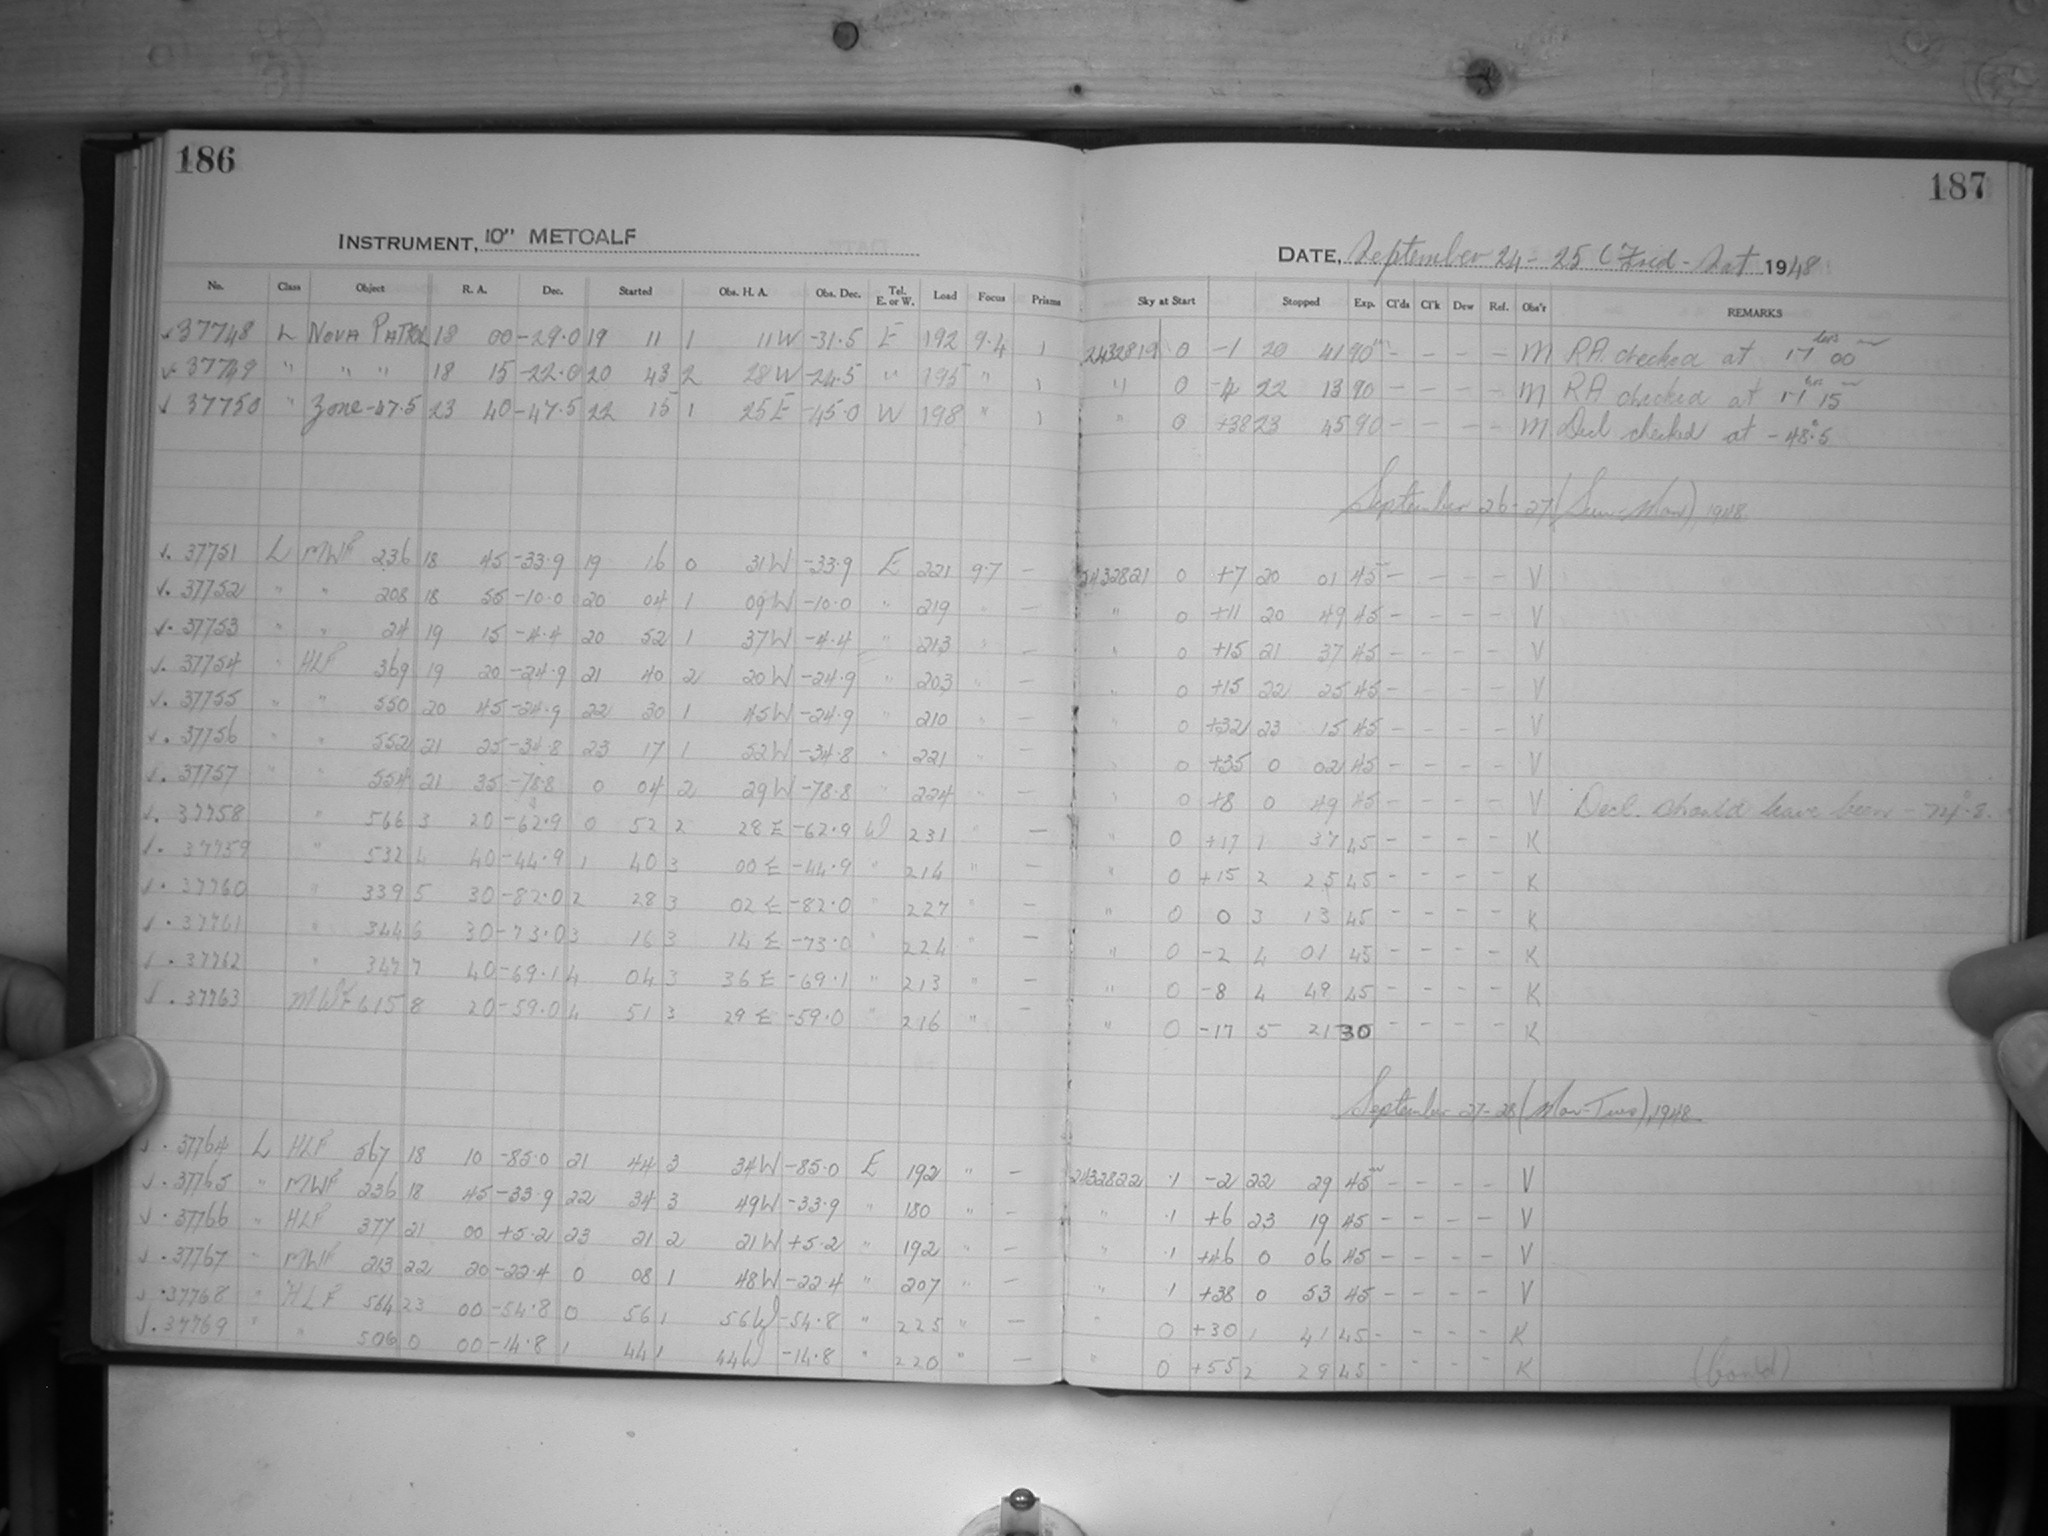 186
187
INSTRUMENT, 10" METCALF
DATE, September 24-25 (Frid-Sat 1948
No. Class Object R. A. Dec. Started Obs. H. A. Obs. Dec. Tel. E. or W. Load Focus Prisms Sky at Start Stopped Exp. Cl'ds Cl'k Dew Ref. Obs'r REMARKS
37748 L NOVA PATROL 18 00 -29.0 19 11 1 11 W -31.5 E 192 9.4 1 2432819 0 -1 20 41 90m - - - - M RA checked at 17 hrs 00 m
37749 " " " 18 15 -22.0 20 43 2 28 W -24.5 " 195 " 1 " 0 -4 22 13 90 - - - - M RA checked at 17 hrs 15 m
37750 " Zone -47.5 23 40 -47.5 22 15 1 25 E -45.0 W 198 " 1 " 0 +38 23 45 90 - - - - M Decl checked at -48°.5
September 26-27 (Sun-Mon), 1948
37751 L MWF 236 18 45 -33.9 19 16 0 31 W -33.9 E 221 9.7 - 2432821 0 +7 20 01 45 - - - - V
37752 " " 208 18 55 -10.0 20 04 1 09 W -10.0 " 219 " - " 0 +11 20 49 45 - - - - V
37753 " " 24 19 15 -4.4 20 52 1 37 W -4.4 " 213 " - " 0 +15 21 37 45 - - - - V
37754 " HLF 369 19 20 -24.9 21 40 2 20 W -24.9 " 203 " - " 0 +15 22 25 45 - - - - V
37755 " " 550 20 45 -24.9 22 30 1 45 W -24.9 " 210 " - " 0 +32 23 15 45 - - - - V
37756 " " 552 21 25 -34.8 23 17 1 52 W -34.8 " 221 " - " 0 +35 0 02 45 - - - - V
37757 " " 554 21 35 -78.8 0 04 2 29 W -78.8 " 224 " - " 0 +8 0 49 45 - - - - V Decl. should have been -74°.8.
37758 " 566 3 20 -62.9 0 52 2 28 E -62.9 W 231 " - " 0 +17 1 37 45 - - - - K
37759 " 532 4 40 -44.9 1 40 3 00 E -44.9 " 214 " - " 0 +15 2 25 45 - - - - K
37760 " 339 5 30 -82.0 2 28 3 02 E -82.0 " 227 " - " 0 0 3 13 45 - - - - K
37761 " 344 6 30 -73.0 3 16 3 14 E -73.0 " 224 " - " 0 -2 4 01 45 - - - - K
37762 " 347 7 40 -69.1 4 04 3 36 E -69.1 " 213 " - " 0 -8 4 49 45 - - - - K
37763 MWF 615 8 20 -59.0 4 51 3 29 E -59.0 " 216 " - " 0 -17 5 21 30 - - - - K
September 27-28 (Mon-Tues), 1948
37764 L HLF 567 18 10 -85.0 21 44 3 34 W -85.0 E 192 " - 2432822 .1 -2 22 29 45m - - - - V
37765 " MWF 236 18 45 -33.9 22 34 3 49 W -33.9 " 180 " - " .1 +6 23 19 45 - - - - V
37766 " HLF 377 21 00 +5.2 23 21 2 21 W +5.2 " 192 " - " .1 +46 0 06 45 - - - - V
37767 " MWF 213 22 20 -22.4 0 08 1 48 W -22.4 " 207 " - " .1 +38 0 53 45 - - - - V
37768 " HLF 564 23 00 -54.8 0 56 1 56 W -54.8 " 225 " - " 0 +30 1 41 45 - - - - K
37769 " " 506 0 00 -14.8 1 44 1 44 W -14.8 " 220 " - " 0 +55 2 29 45 - - - - K
(Contd)